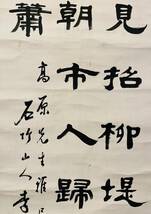 見招柳堤
朝市人歸
蕭
高原先生雅
石竹山人李